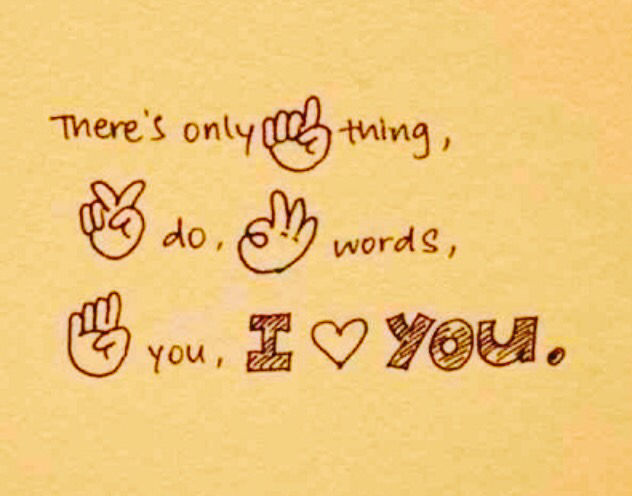 There's only thing,
do, words,
you, I ♡ You.